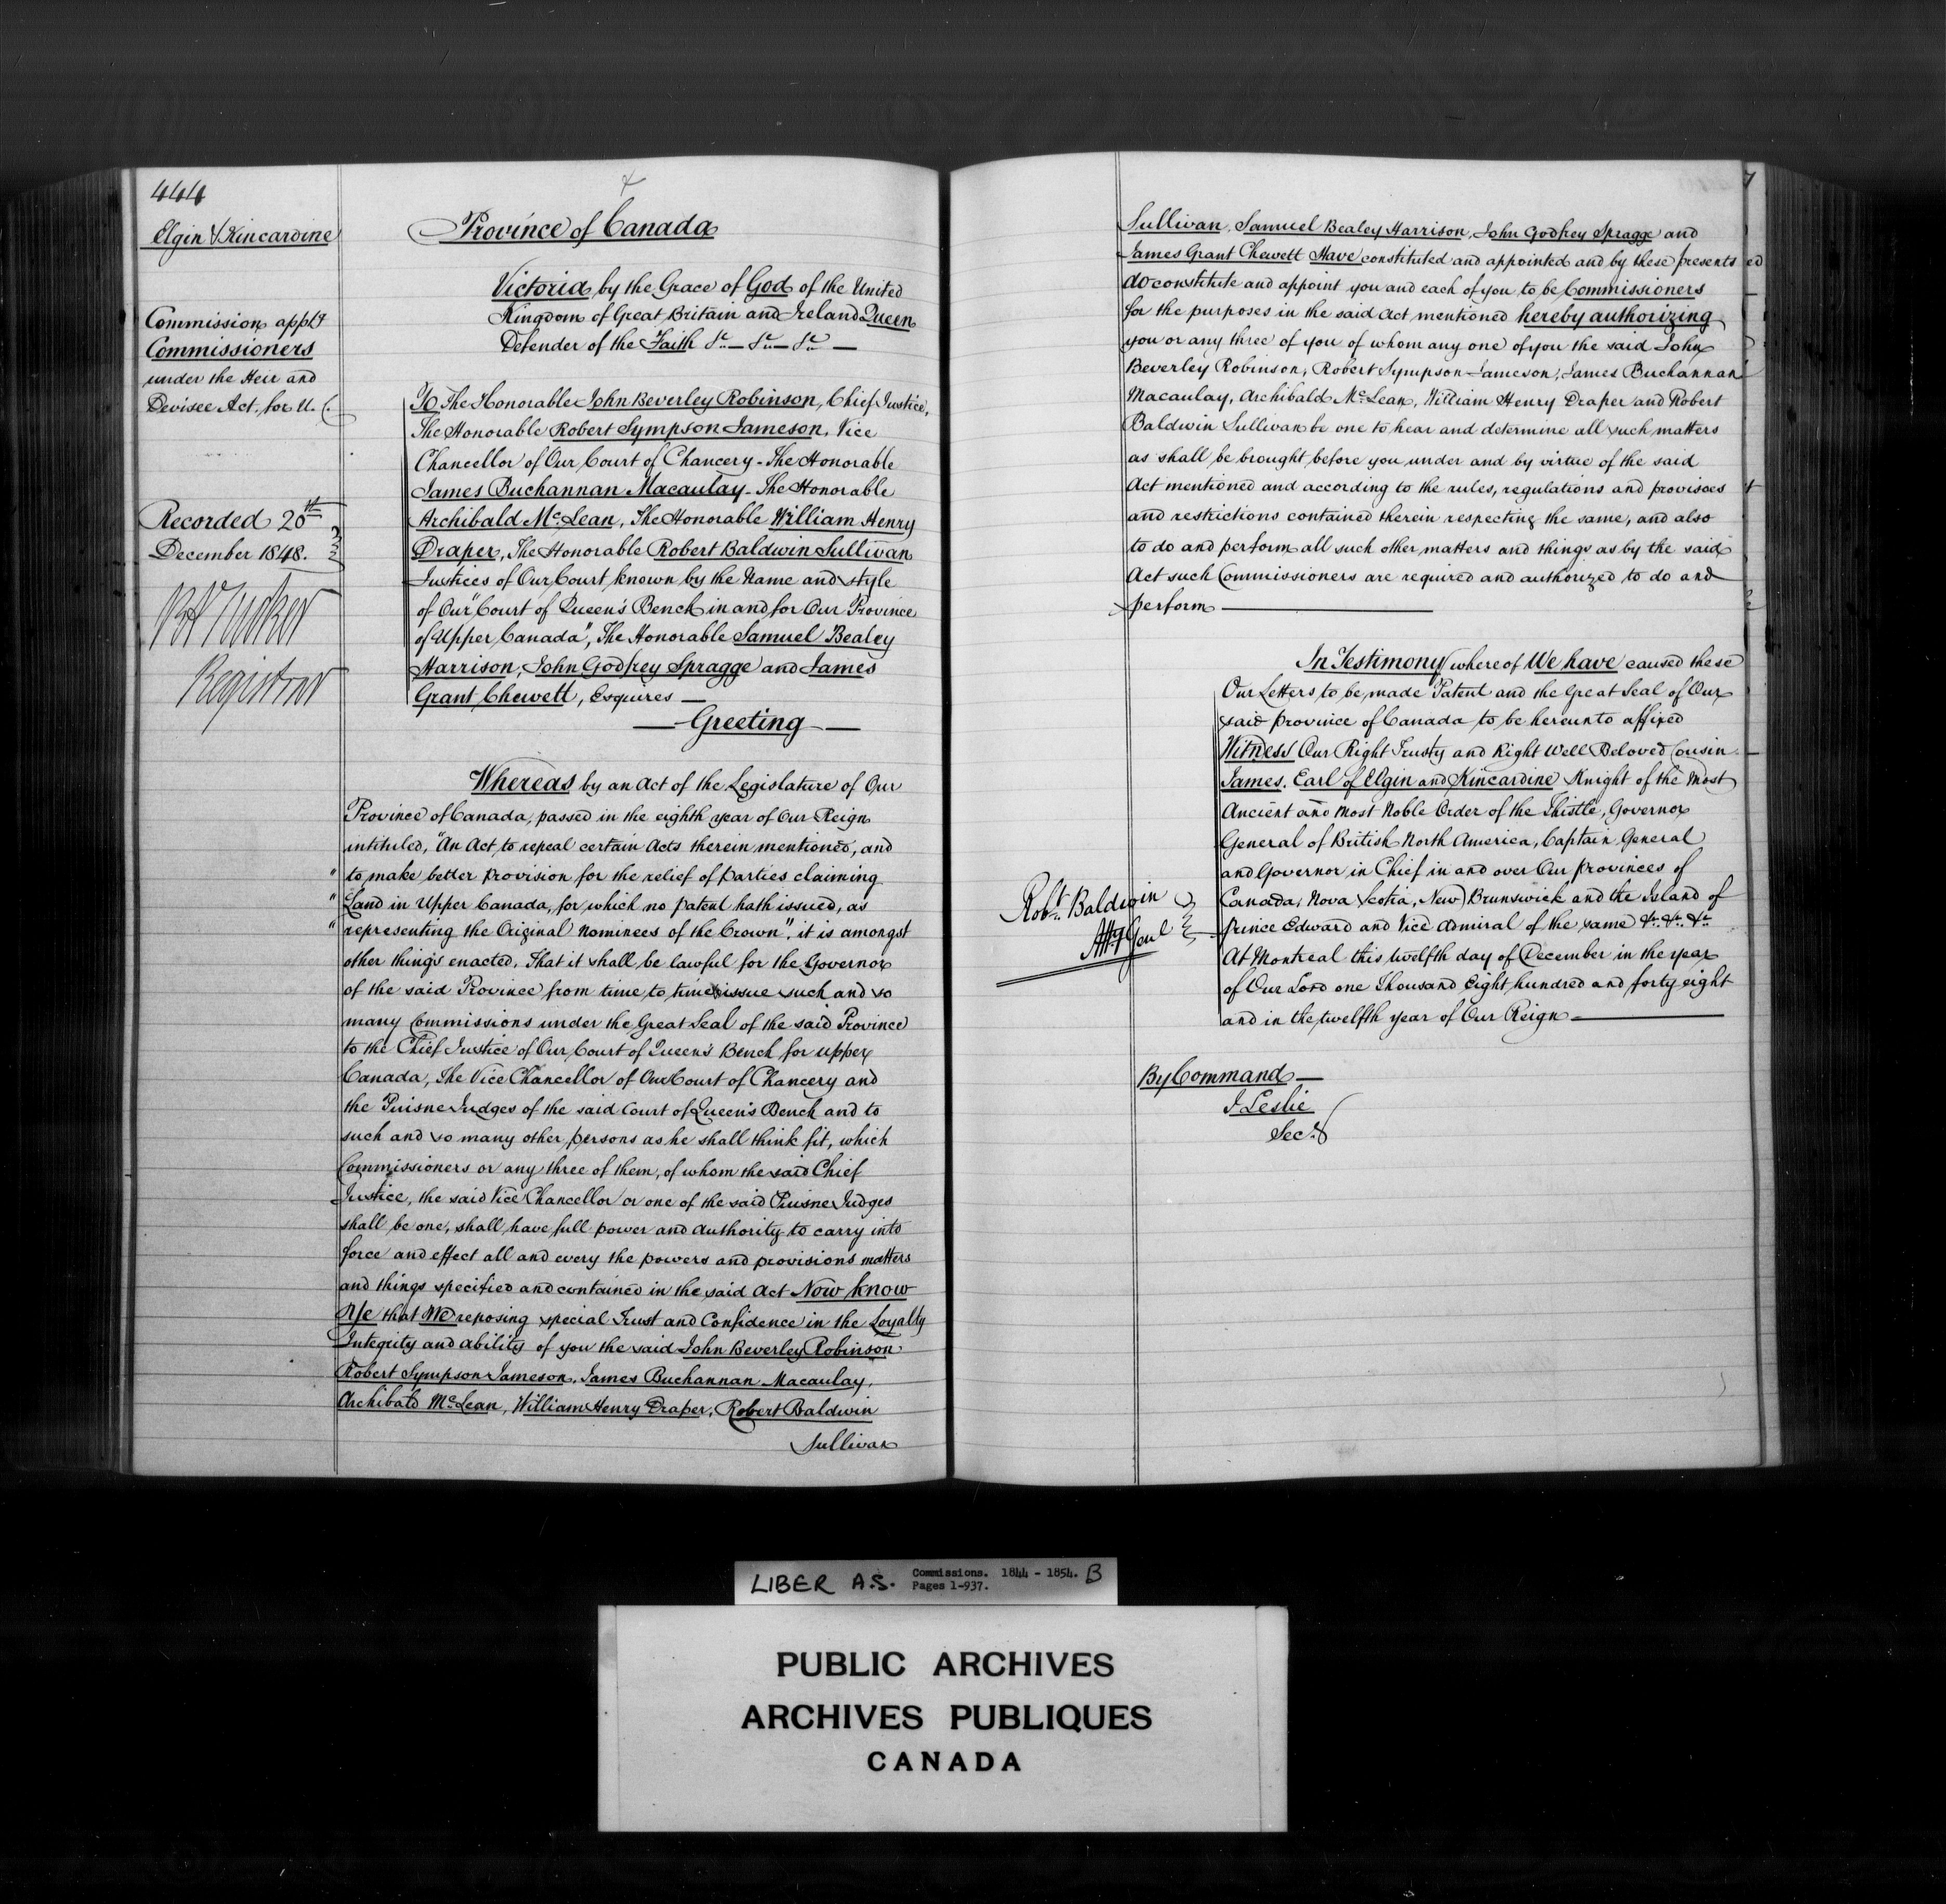 444
Elgin & Kincardine
Commission appt'g
Commissioners
under the Heir and
Devisee Act, for U. C.
Recorded 20th
December 1848.
RA Tucker
Registrar
Province of Canada
Victoria by the Grace of God of the United
Kingdom of Great Britain and Ireland Queen
Defender of the Faith &c — &c — &c —
To The Honorable John Beverley Robinson, Chief Justice,
The Honorable Robert Sympson Jameson, Vice
Chancellor of Our Court of Chancery - The Honorable
James Buchannan Macaulay - The Honorable
Archibald McLean, The Honorable William Henry
Draper, The Honorable Robert Baldwin Sullivan
Justices of Our Court known by the Name and style
of Our "Court of Queen's Bench in and for Our Province
of Upper Canada", The Honorable Samuel Bealey
Harrison, John Godfrey Spragge and James
Grant Chewett, Esquires —
— Greeting —
Whereas by an Act of the Legislature of Our
Province of Canada, passed in the eighth year of Our Reign
intituled, "An Act to repeal certain Acts therein mentioned, and
" to make better provision for the relief of parties claiming
" Land in Upper Canada, for which no patent hath issued, as
" representing the Original Nominees of the Crown", it is amongst
other things enacted, That it shall be lawful for the Governor
of the said Province from time to time to issue such and so
many Commissions under the Great Seal of the said Province
to the Chief Justice of Our Court of Queen's Bench for upper
Canada, The Vice Chancellor of Our Court of Chancery and
the Puisne Judges of the said Court of Queen's Bench and to
such and so many other persons as he shall think fit, which
Commissioners or any three of them, of whom the said Chief
Justice, the said Vice Chancellor or one of the said Puisne Judges
shall be one, shall have full power and authority to carry into
force and effect all and every the powers and provisions matters
and things specified and contained in the said Act Now Know
Ye that We reposing special Trust and Confidence in the Loyalty
Integrity and ability of you the said John Beverley Robinson
Robert Sympson Jameson, James Buchannan Macaulay,
Archibald McLean, William Henry Draper, Robert Baldwin
Sullivan
Sullivan, Samuel Bealey Harrison, John Godfrey Spragge and
James Grant Chewett Have constituted and appointed and by these presents
do constitute and appoint you and each of you to be Commissioners
for the purposes in the said Act mentioned hereby authorizing
you or any three of you of whom any one of you the said John
Beverley Robinson, Robert Sympson Jameson, James Buchannan
Macaulay, Archibald McLean, William Henry Draper and Robert
Baldwin Sullivan be one to hear and determine all such matters
as shall be brought before you under and by virtue of the said
Act mentioned and according to the rules, regulations and provisoes
and restrictions contained therein respecting the same, and also
to do and perform all such other matters and things as by the said
Act such Commissioners are required and authorized to do and
perform —
In Testimony whereof We have caused these
Our Letters to be made Patent and the Great Seal of Our
said province of Canada to be hereunto affixed
Witness Our Right Trusty and Right Well Beloved Cousin
James, Earl of Elgin and Kincardine Knight of the Most
Ancient and Most Noble Order of the Thistle, Governor
General of British North America, Captain General
and Governor in Chief in and over Our provinces of
Canada, Nova Scotia, New Brunswick and the Island of
Prince Edward and Vice Admiral of the same &c. &c. &c.
At Montreal this twelfth day of December in the year
of Our Lord one Thousand Eight hundred and forty eight
and in the twelfth year of Our Reign —
Robt. Baldwin
Atty Genl
By Command —
J Leslie
Secy
LIBER A.S. Commissions. 1844 - 1854. B
Pages 1-937.
PUBLIC ARCHIVES
ARCHIVES PUBLIQUES
CANADA